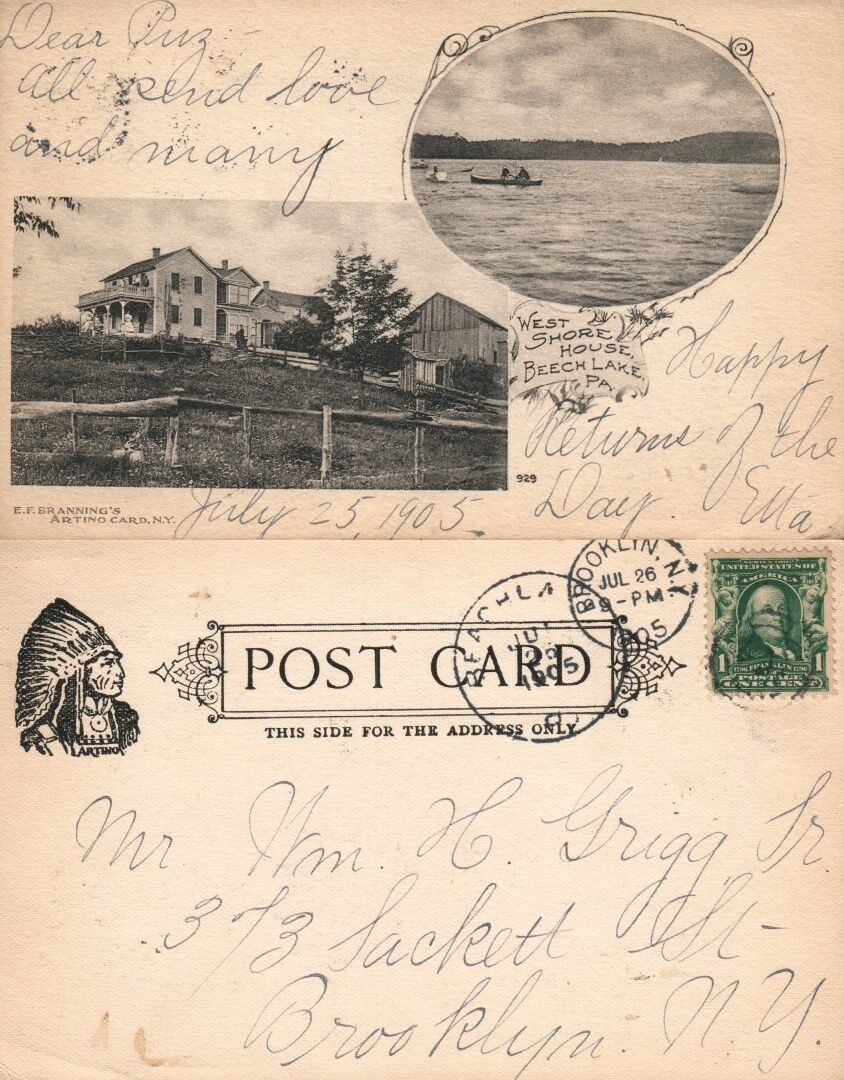 Dear Puz -
All send love
and many
Happy
Returns of the
Day. Etta
July 25, 1905
WEST
SHORE
HOUSE,
BEECH LAKE,
PA.
929
E.F. BRANNING'S
ARTINO CARD, N.Y.
BROOKLYN, N.Y.
JUL 26
9-PM
1905
BEACH LA
JUL
1905
SERIES 1902
UNITED STATES OF
AMERICA
1 1
1706 FRANKLIN 1790
POSTAGE
ONE CENT
POST CARD
THIS SIDE FOR THE ADDRESS ONLY
ARTINO
Mr. Wm. H. Grigg Sr.
373 Sackett St-
Brooklyn. N.Y.